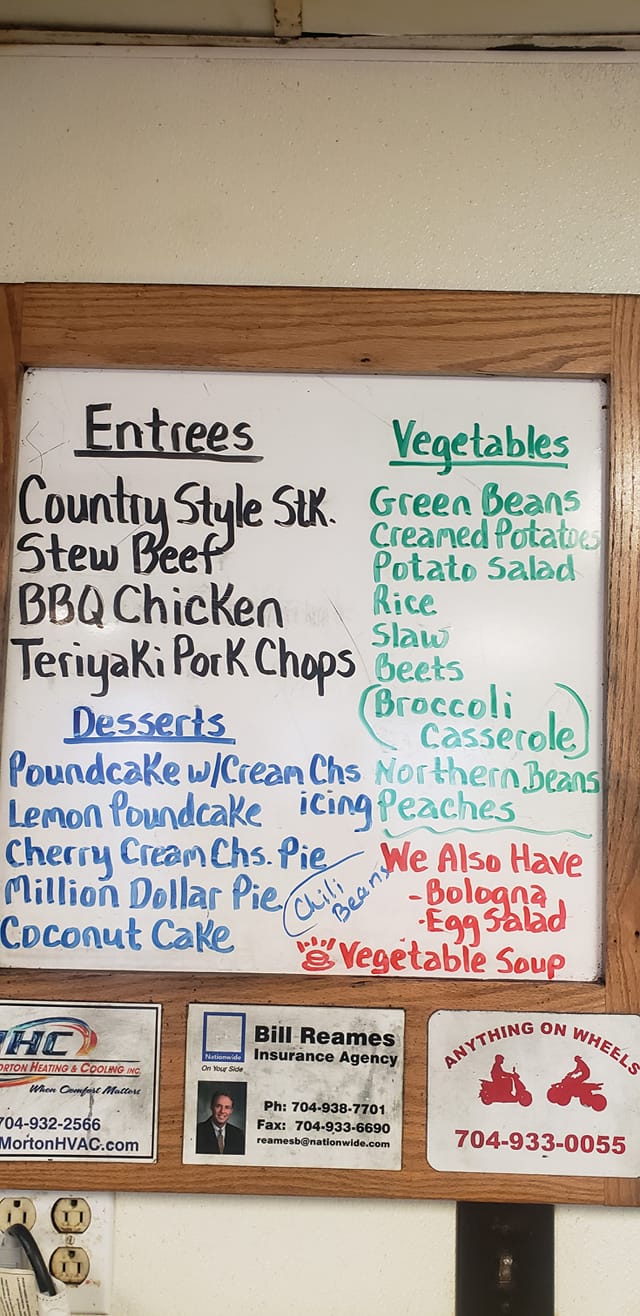 Entrees
Country Style Stk.
Stew Beef
BBQ Chicken
Teriyaki Pork Chops
Desserts
Poundcake w/Cream Chs
icing
Lemon Poundcake
Cherry Cream Chs. Pie
Million Dollar Pie
Coconut Cake
Chili
Beans
Vegetables
Green Beans
Creamed Potatoes
Potato Salad
Rice
Slaw
Beets
(Broccoli
Casserole)
Northern Beans
Peaches
We Also Have
-Bologna
-Egg Salad
Vegetable Soup
HC
HEATING & COOLING INC.
When Comfort Matters
704-932-2566
MortonHVAC.com
Nationwide
On Your Side
Bill Reames
Insurance Agency
Ph: 704-938-7701
Fax: 704-933-6690
reamesb@nationwide.com
ANYTHING ON WHEELS
704-933-0055